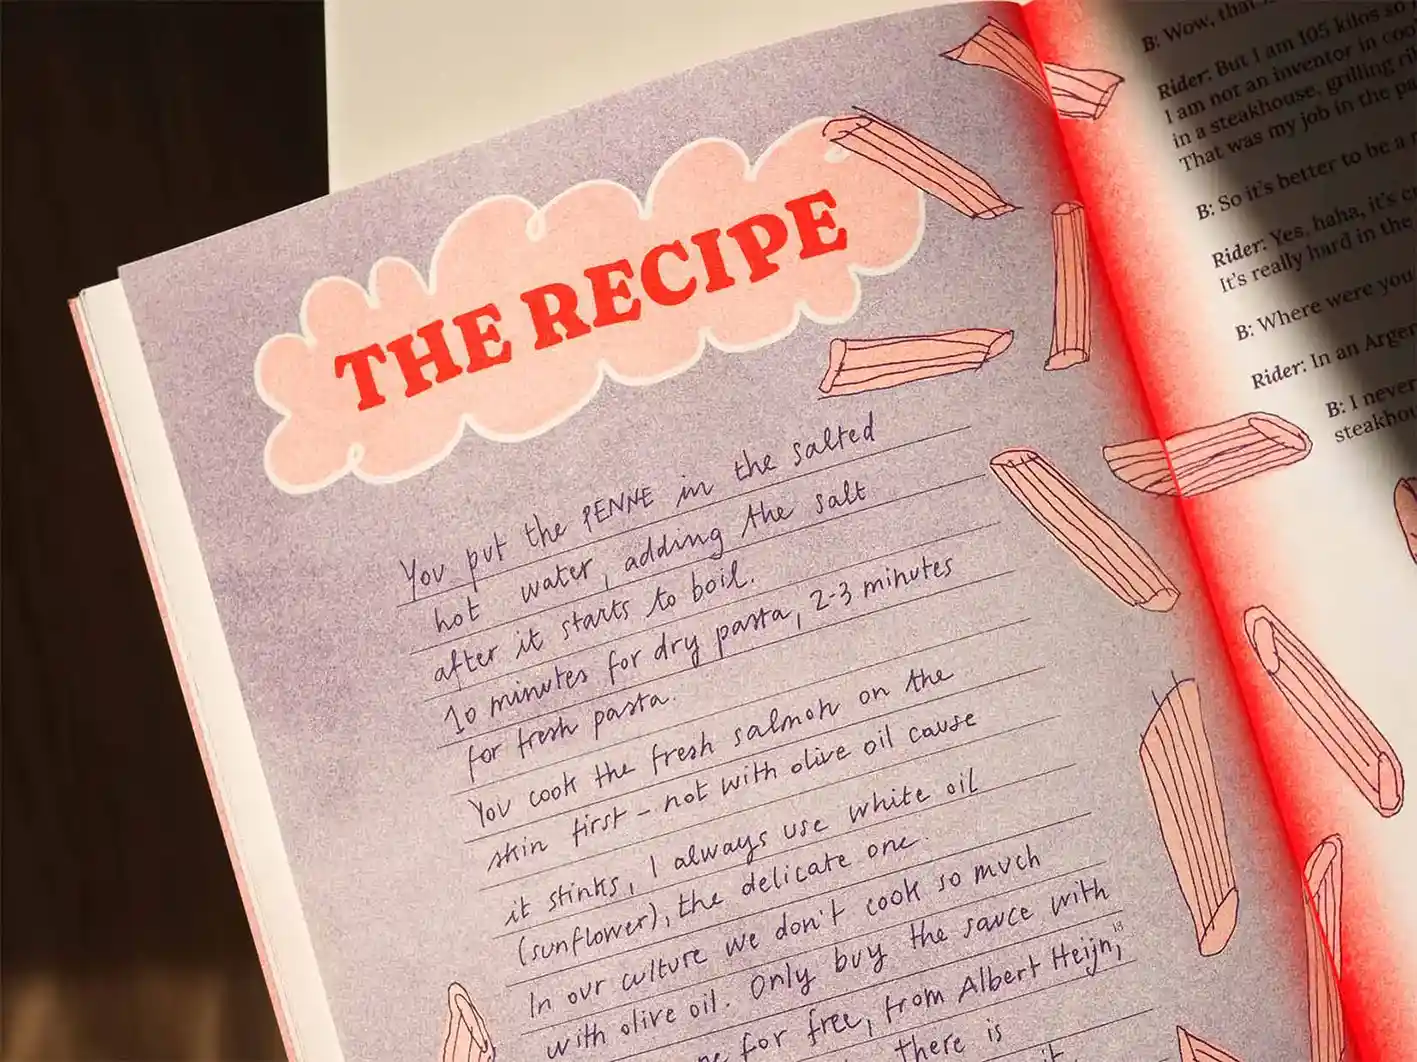 THE RECIPE
You put the PENNE in the salted
hot water, adding the salt
after it starts to boil.
10 minutes for dry pasta, 2-3 minutes
for fresh pasta.
You cook the fresh salmon on the
skin first - not with olive oil cause
it stinks, I always use white oil
(sunflower), the delicate one.
In our culture we don't cook so much
with olive oil. Only buy the sauce with
for free, from Albert Heijn,¹³
there is
B: Wow, that
Rider: But I am 105 kilos so
I am not an inventor in
in a steakhouse, grilling
That was my job in the
B: So it's better to be a
Rider: Yes, haha, it's
It's really hard in the
B: Where were you
Rider: In an
B: I never